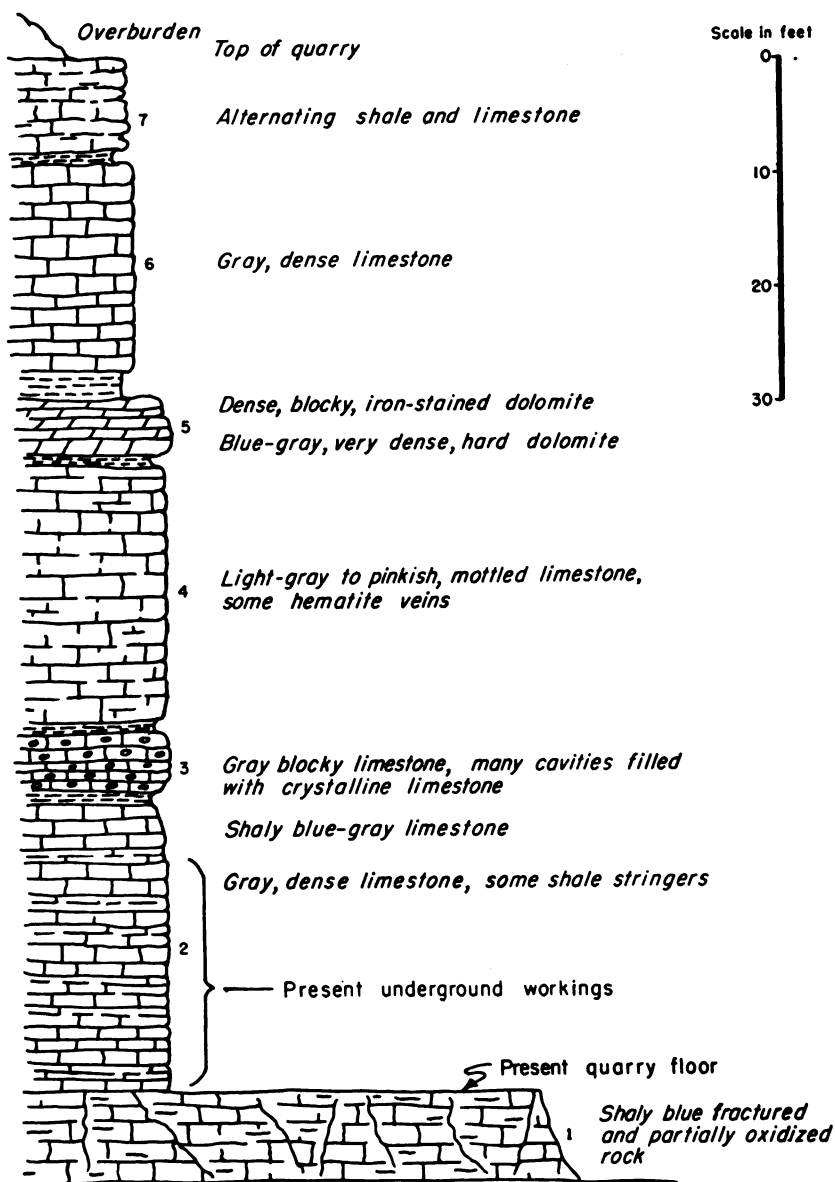 Overburden
Top of quarry
Scale in feet
0
7
Alternating shale and limestone
10
6
Gray, dense limestone
20
30
Dense, blocky, iron-stained dolomite
5
Blue-gray, very dense, hard dolomite
4
Light-gray to pinkish, mottled limestone,
some hematite veins
3
Gray blocky limestone, many cavities filled
with crystalline limestone
Shaly blue-gray limestone
Gray, dense limestone, some shale stringers
2
Present underground workings
Present quarry floor
1
Shaly blue fractured
and partially oxidized
rock